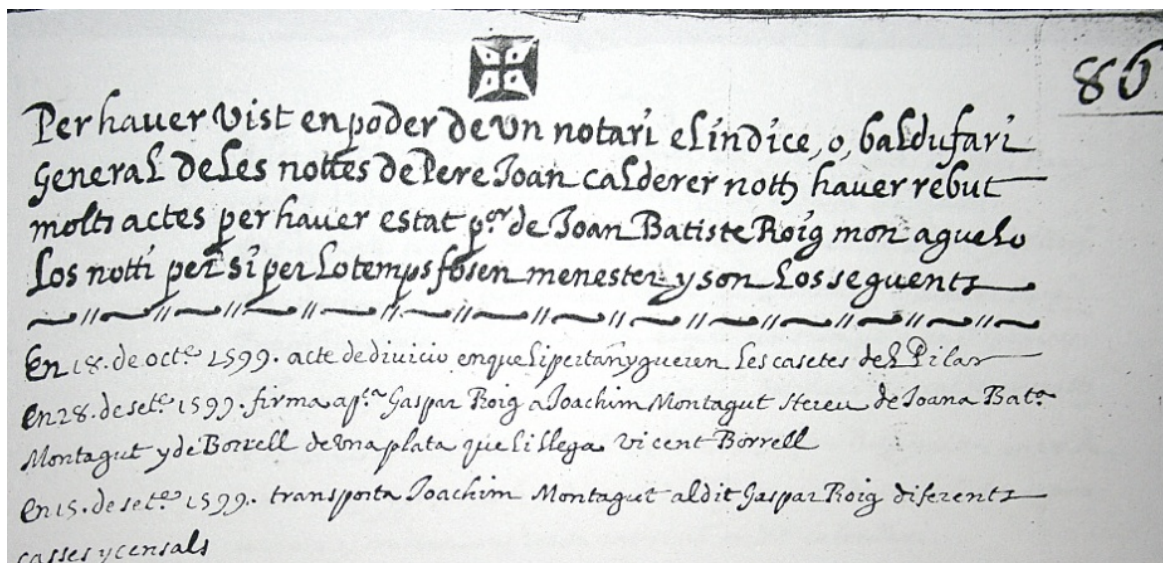 86
Per hauer vist en poder de Vn notari el índice, o, baldufari
General de Les nottes de Pere Joan calderer noth hauer rebut
molts actes per hauer estat p.or de Joan Batiste Roig mon aguelo
Los notti per si per Lo temps fosen menester y son Los seguents
En 18. de oct.e 1599. acte de diuicio en que li pertañygueren Les casetes del Pilar
en 28. de set.e 1599. firma ap.ca Gaspar Roig a Joachim Montagut hereu de Joana Bat.a
Montagut y de Borrell de vna plata que li llega vicent Borrell
en 15. de set.e 1599. transporta Joachim Montagut al dit Gaspar Roig diferents
casses y censals